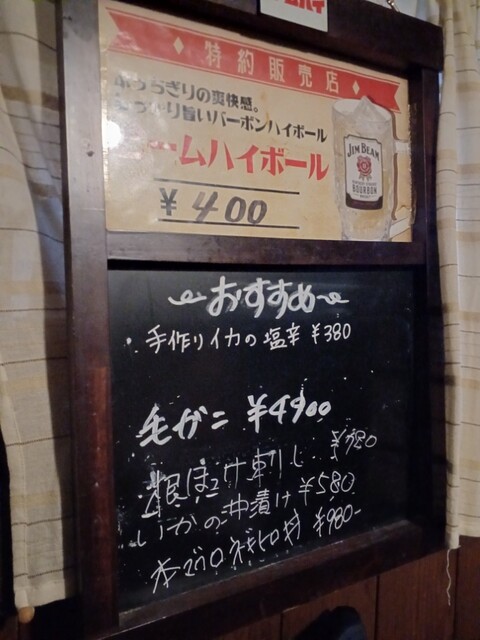 特約販売店
ぶっちぎりの爽快感。
旨いバーボンハイボール
ームハイボール
¥400
JIM BEAM
BOURBON
おすすめ
・手作りイカの塩辛 ¥380
毛ガニ ¥4900
根ぼっけ刺し
いかの沖漬け ¥580
¥980-